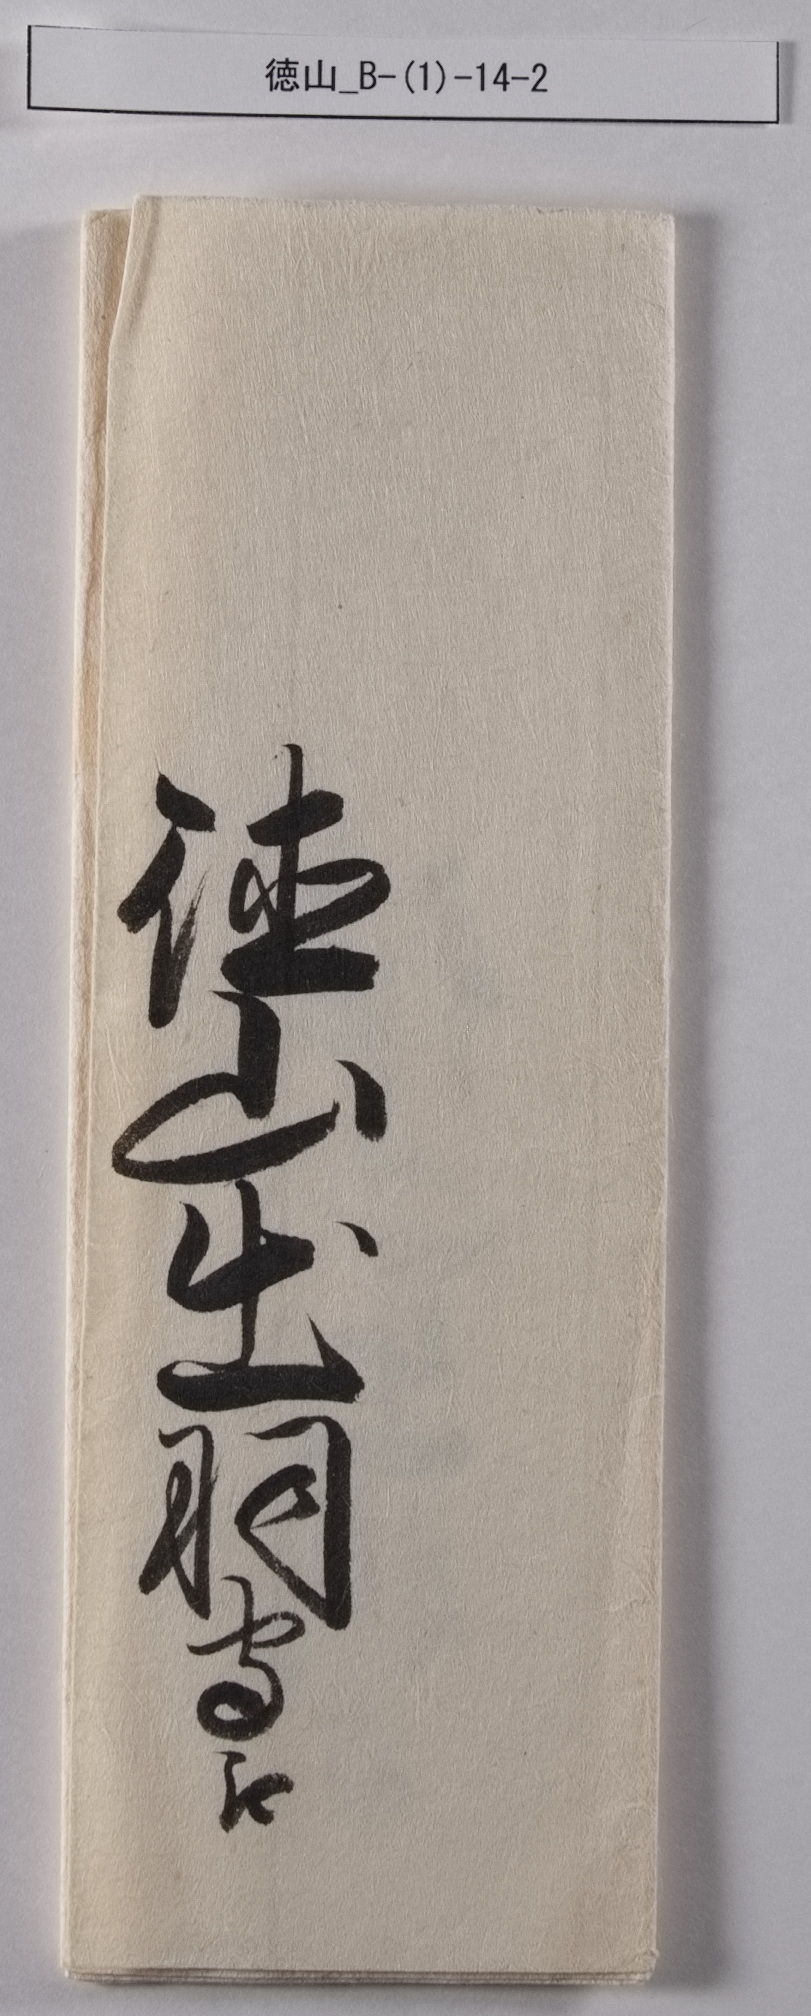 徳山_B-(1)-14-2
徳山出羽守